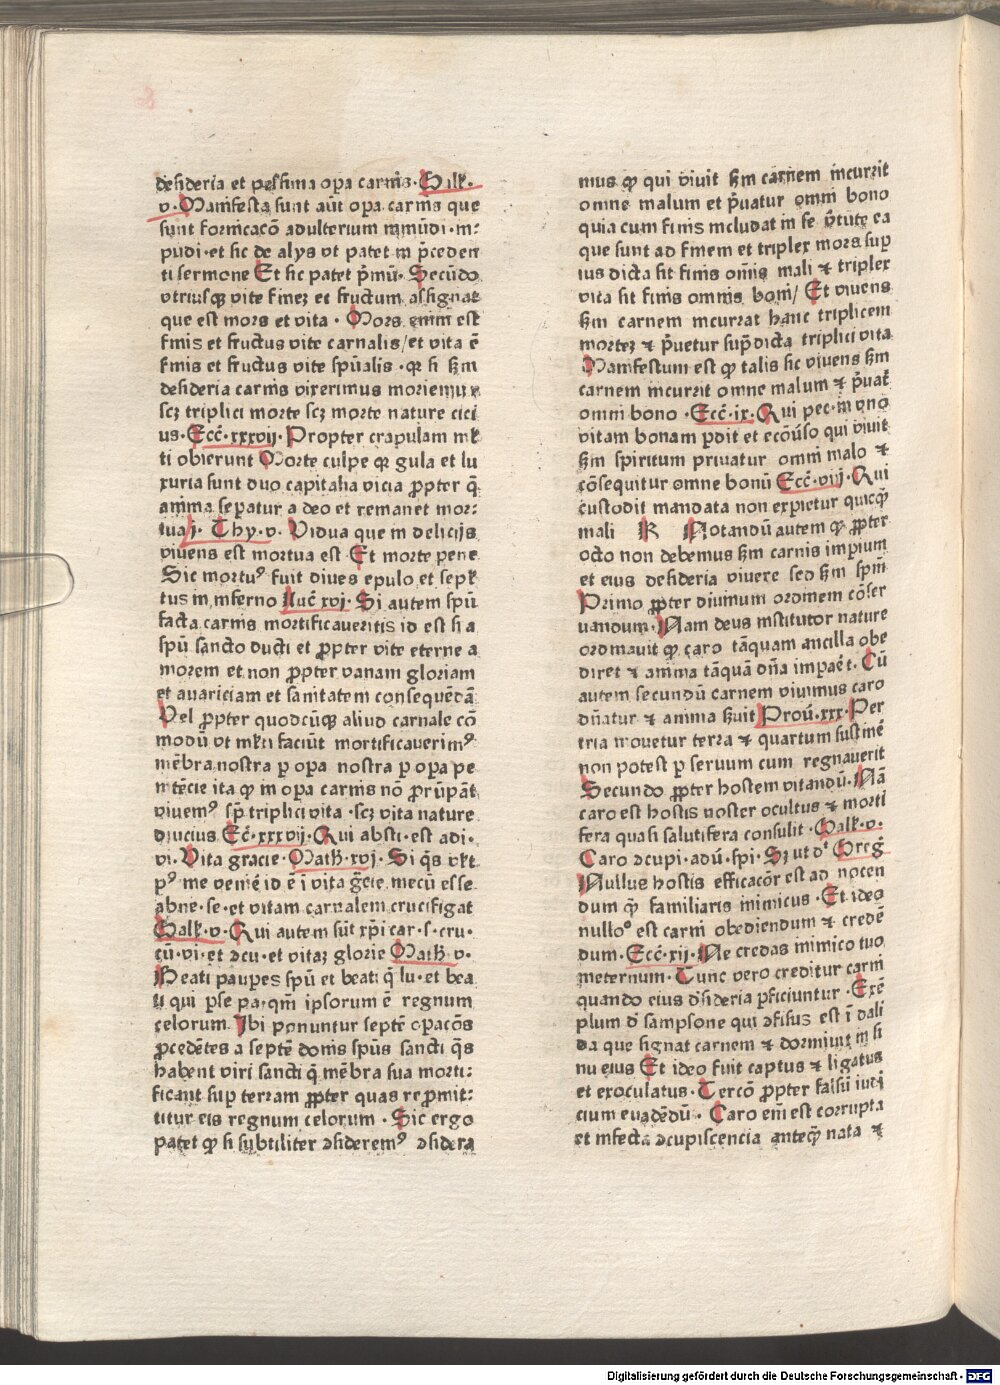 desideria et pessima opa carnis· Gall̕·
v· Manifesta sunt aūt opa carnis que
sunt fornicacō adulterium inmūdi· in⸗
pudi· et sic de alijs vt patet in p̄ceden
ti sermone Et sic patet p̄mū· Secūdo
vtriusqꝫ vite finez et fructum assignat
que est mors et vita · Mors enim est
finis et fructus vite carnalis/et vita ē
finis et fructus vite spūalis · qꝛ si ẜm
desideria carnis vixerimus moriemur
scꝫ triplici morte scꝫ morte nature cici
us· Eccē·xxxvij· Propter crapulam ml̕
ti obierunt Morte culpe qꝛ gula et lu
xuria sunt duo capitalia vicia ꝓpter q̄
anima sepatur a deo et remanet mor⸗
tua j· Thy·v· Vidua que in delicijs
viuens est mortua est Et morte pene
Sic mortuꝰ fuit diues epulo et sepl̕
tus in inferno Luc̄ xvj· Si autem spū
facta carnis mortificaueritis id est si a
spū sancto ducti et ꝓpter vite eterne a
morem et non ꝓpter vanam gloriam
et auariciam et sanitatem consequēdā
Vel ꝓpter quodcūqꝫ aliud carnale cō
modū vt ml̕ti faciūt mortificauerimꝰ
mēbra nostra p opa nostra p opa pe
nitēcie ita ꝙ in opa carnis nō prūpāt
viuemꝰ sp̄ triplici vita · scꝫ vita nature
diucius Ec̄·xxxvij· Qui absti· est adi·
vi· Vita gracie· Math·xvj· Si q̄s vl̕t
pꝰ me venire id ē ī vita gr̄cie mecū esse
abne· se· et vitam carnalem crucifigat
Gall̕·v· Qui autem sūt xp̄i car·s·cru·
cū·vi·et ɔcu· et vitaꝫ glorie Math v·
Beati paupes spū et beati q̄ lu· et bea
ti qui pse pa· qm̄ ipsorum ē regnum
celorum Ibi ponuntur septē opacōs
ꝓcedētes a septē donis spūs sancti q̄s
habent viri sancti q̄ mēbra sua morti⸗
ficant sup terram ꝓpter quas repromit⸗
titur eis regnum celorum · Sic ergo
patet ꝙ si subtiliter ɔsideremꝰ ɔsidera
mus ꝙ qui viuit ẜm carnem incurrit
omne malum et p̄uatur omni bono
quia cum finis includat in se v̄tute ea
que sunt ad finem et triplex mors sup
ius dicta sit finis om̄is mali ⁊ triplex
vita sit finis omnis boni/ Et viuens
ẜm carnem incurrat hanc triplicem
mortez ⁊ p̄uetur sup̄dicta triplici vita
Manifestum est ꝙ talis sic viuens ẜm
carnem incurrit omne malum ⁊ p̄uat̄
omni bono · Ecc̄·ix· Qui pec· in vno
vitam bonam pdit et ecōūso qui viuit
ẜm spiritum priuatur omni malo ⁊
cōsequitur omne bonū Ecc̄·viij· Qui
custodit mandata non expietur quicq̄
mali R Notandū autem ꝙ ꝓpter
octo non debemus ẜm carnis impium
et eius desideria viuere sed ẜm spm̄
Primo ꝓpter diuinum ordinem cōser
uandum· Nam deus institutor nature
ordinauit ꝙ caro tāquam ancilla obe
diret ⁊ anima tāquā dn̄a impaēt· Cū
autem secundū carnem viuimus caro
dn̄atur ⁊ anima ẜuit Prou̅·xxx· Per
tria mouetur terra ⁊ quartum sustinē
non potest p seruum cum regnauerit
Secundo ꝓpter hostem vitandū· Nā
caro est hostis noster ocultus ⁊ morti
fera quasi salutifera consulit · Gall̕·v·
Caro ɔcupi· adū· spi· Sꝫ ut dt̕ Greg̕
Nullus hostis efficacōr est ad nocen
dum q̄ familiaris inimicus · Et ideo
nulloº est carni obediendum ⁊ credē
dum· Ecc̄·xij· Ne credas inimico tuo
ineternum· Tunc vero creditur carni
quando eius d̕sideria pficiuntur · Exē
plum d̕ sampsone qui ɔfisus est ī dali
da que signat carnem ⁊ dormiuit in si
nu eius Et ideo fuit captus ⁊ ligatus
et exoculatus· Tercō ꝓpter falsū iudi
cium euadēdū · Caro em̄ est corrupta
et infecta ɔcupiscencia anteq̄ nata ⁊
Digitalisierung gefördert durch die Deutsche Forschungsgemeinschaft - DFG